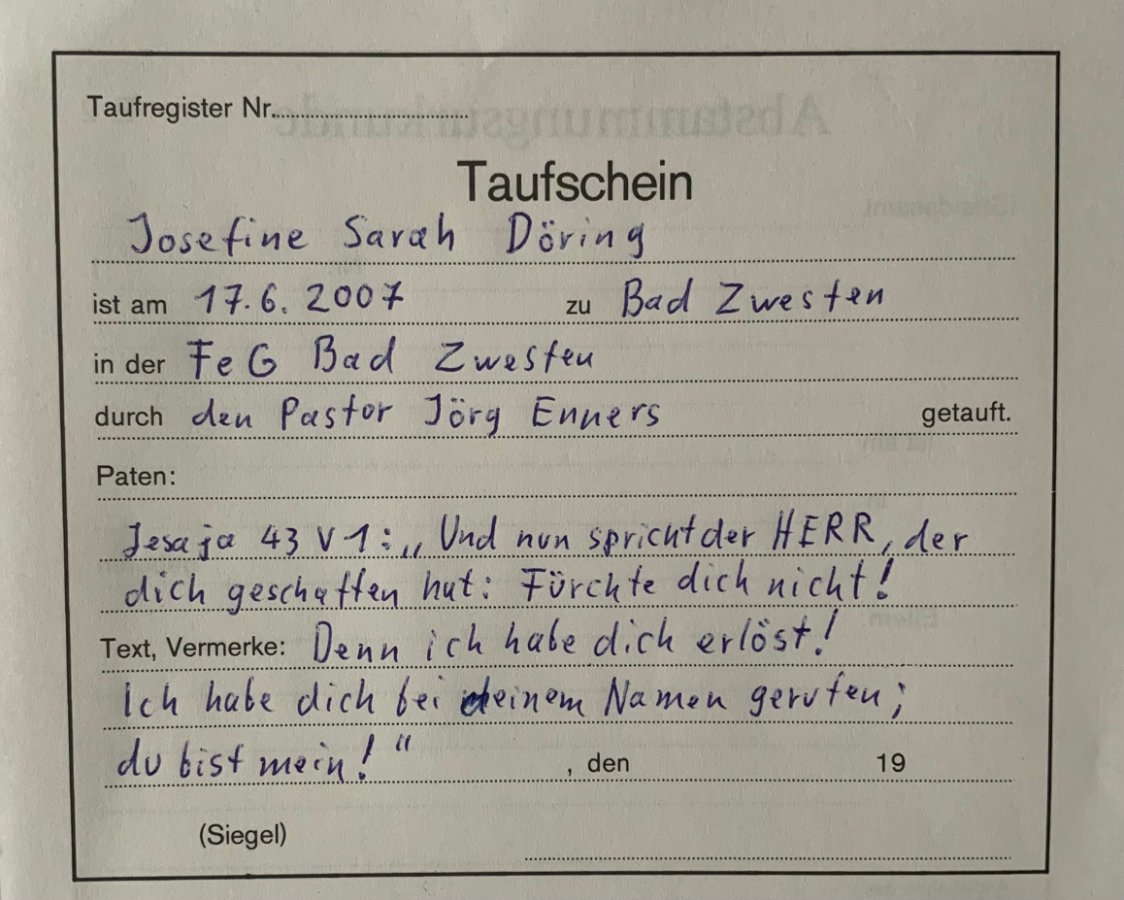 Taufregister Nr.
Taufschein
Josefine Sarah Döring
ist am 17.6.2007 zu Bad Zwesten
in der FeG Bad Zwesten
durch den Pastor Jörg Enners getauft.
Paten:
Jesaja 43 V 1: „Und nun spricht der HERR, der
dich geschaffen hat: Fürchte dich nicht!
Text, Vermerke: Denn ich habe dich erlöst!
Ich habe dich bei deinem Namen gerufen;
du bist mein!“ , den 19
(Siegel)
Abstammungsurkunde